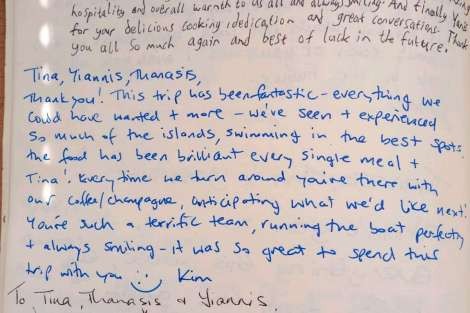 hospitality and overall warmth to us all and always smiling. And finally Yanis
for your delicious cooking, dedication and great conversations. Thank
you all so much again and best of luck in the future.
Tina, Yiannis, Thanasis,
Thank you! This trip has been fantastic - everything we
could have wanted + more - we've seen + experienced
so much of the islands, swimming in the best spots
the food has been brilliant every single meal +
Tina! Every time we turn around you're there with
our coffee/champagne, anticipating what we'd like next!
You're such a terrific team, running the boat perfectly
+ always smiling - it was so great to spend this
trip with you :) Kim
To Tina, Thanasis & Yiannis,